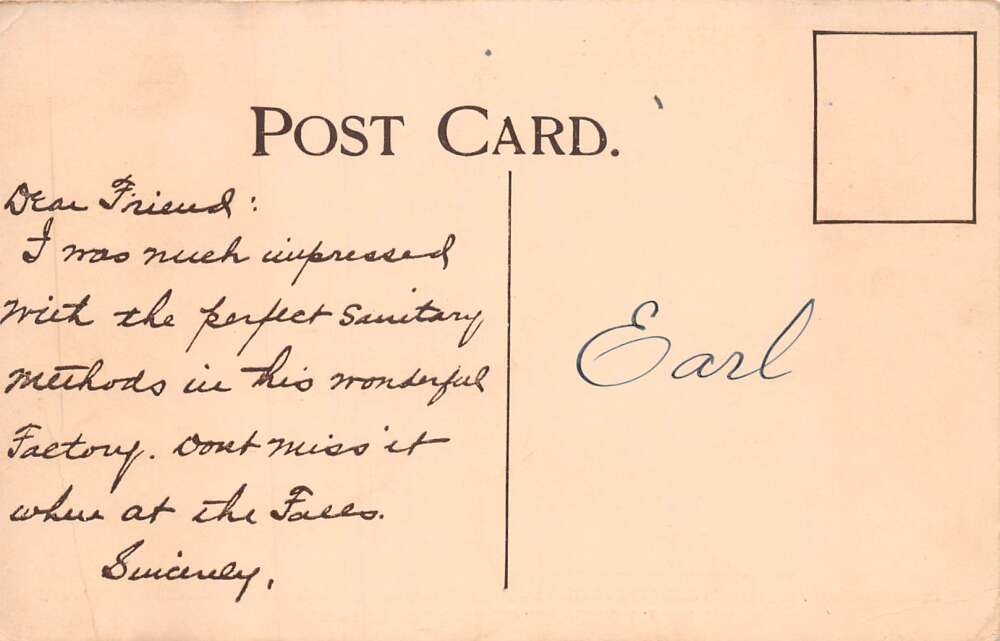 POST CARD.
Dear Friend:
I was much impressed
with the perfect sanitary
methods in this wonderful
Factory. Dont miss it
when at the Falls.
Sincerely,
Earl